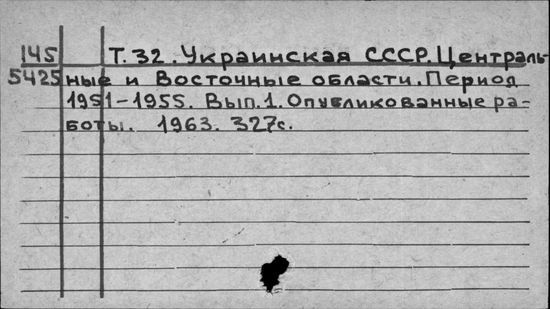 145 Т.32. Украинская СССР. Централь-
5425 ные и Восточные области. Период
1951-1955. Вып.1. Опубликованные ра-
боты. 1963. 327с.